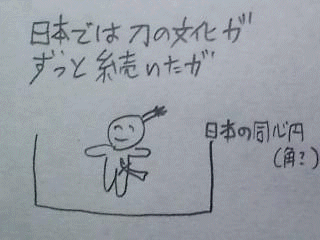 日本では刀の文化が
ずっと続いたが
日本の同心円
(角?)